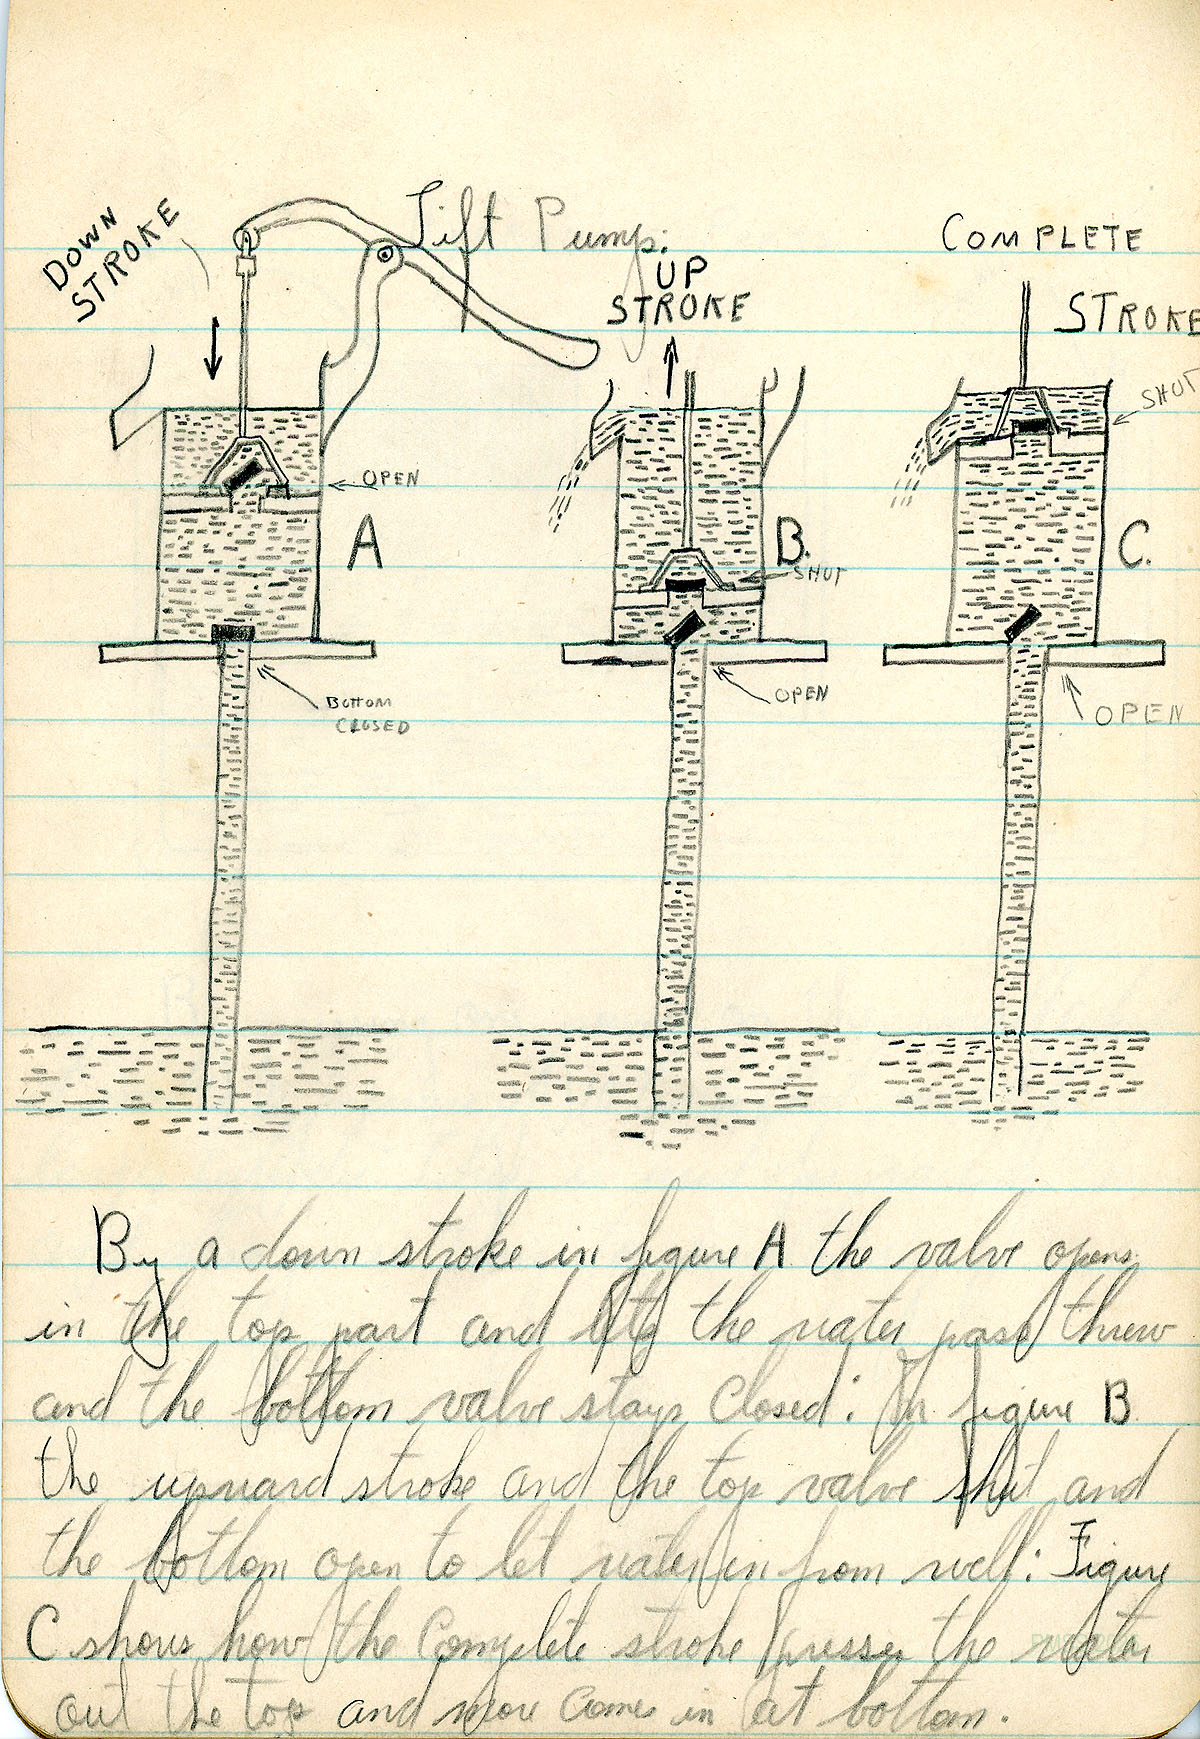 Lift Pump:
DOWN
STROKE
UP
STROKE
COMPLETE
STROKE
SHUT
OPEN
A
B.
SHUT
C.
BOTTOM
CLOSED
OPEN
OPEN
By a down stroke in figure A the valve opens
in the top part and lets the water pass threw
and the bottom valve stays closed: In figure B
the upward stroke and the top valve shut and
the bottom open to let water in from well: Figure
C shows how the Complete stroke presses the water
out the top and more comes in at bottom.